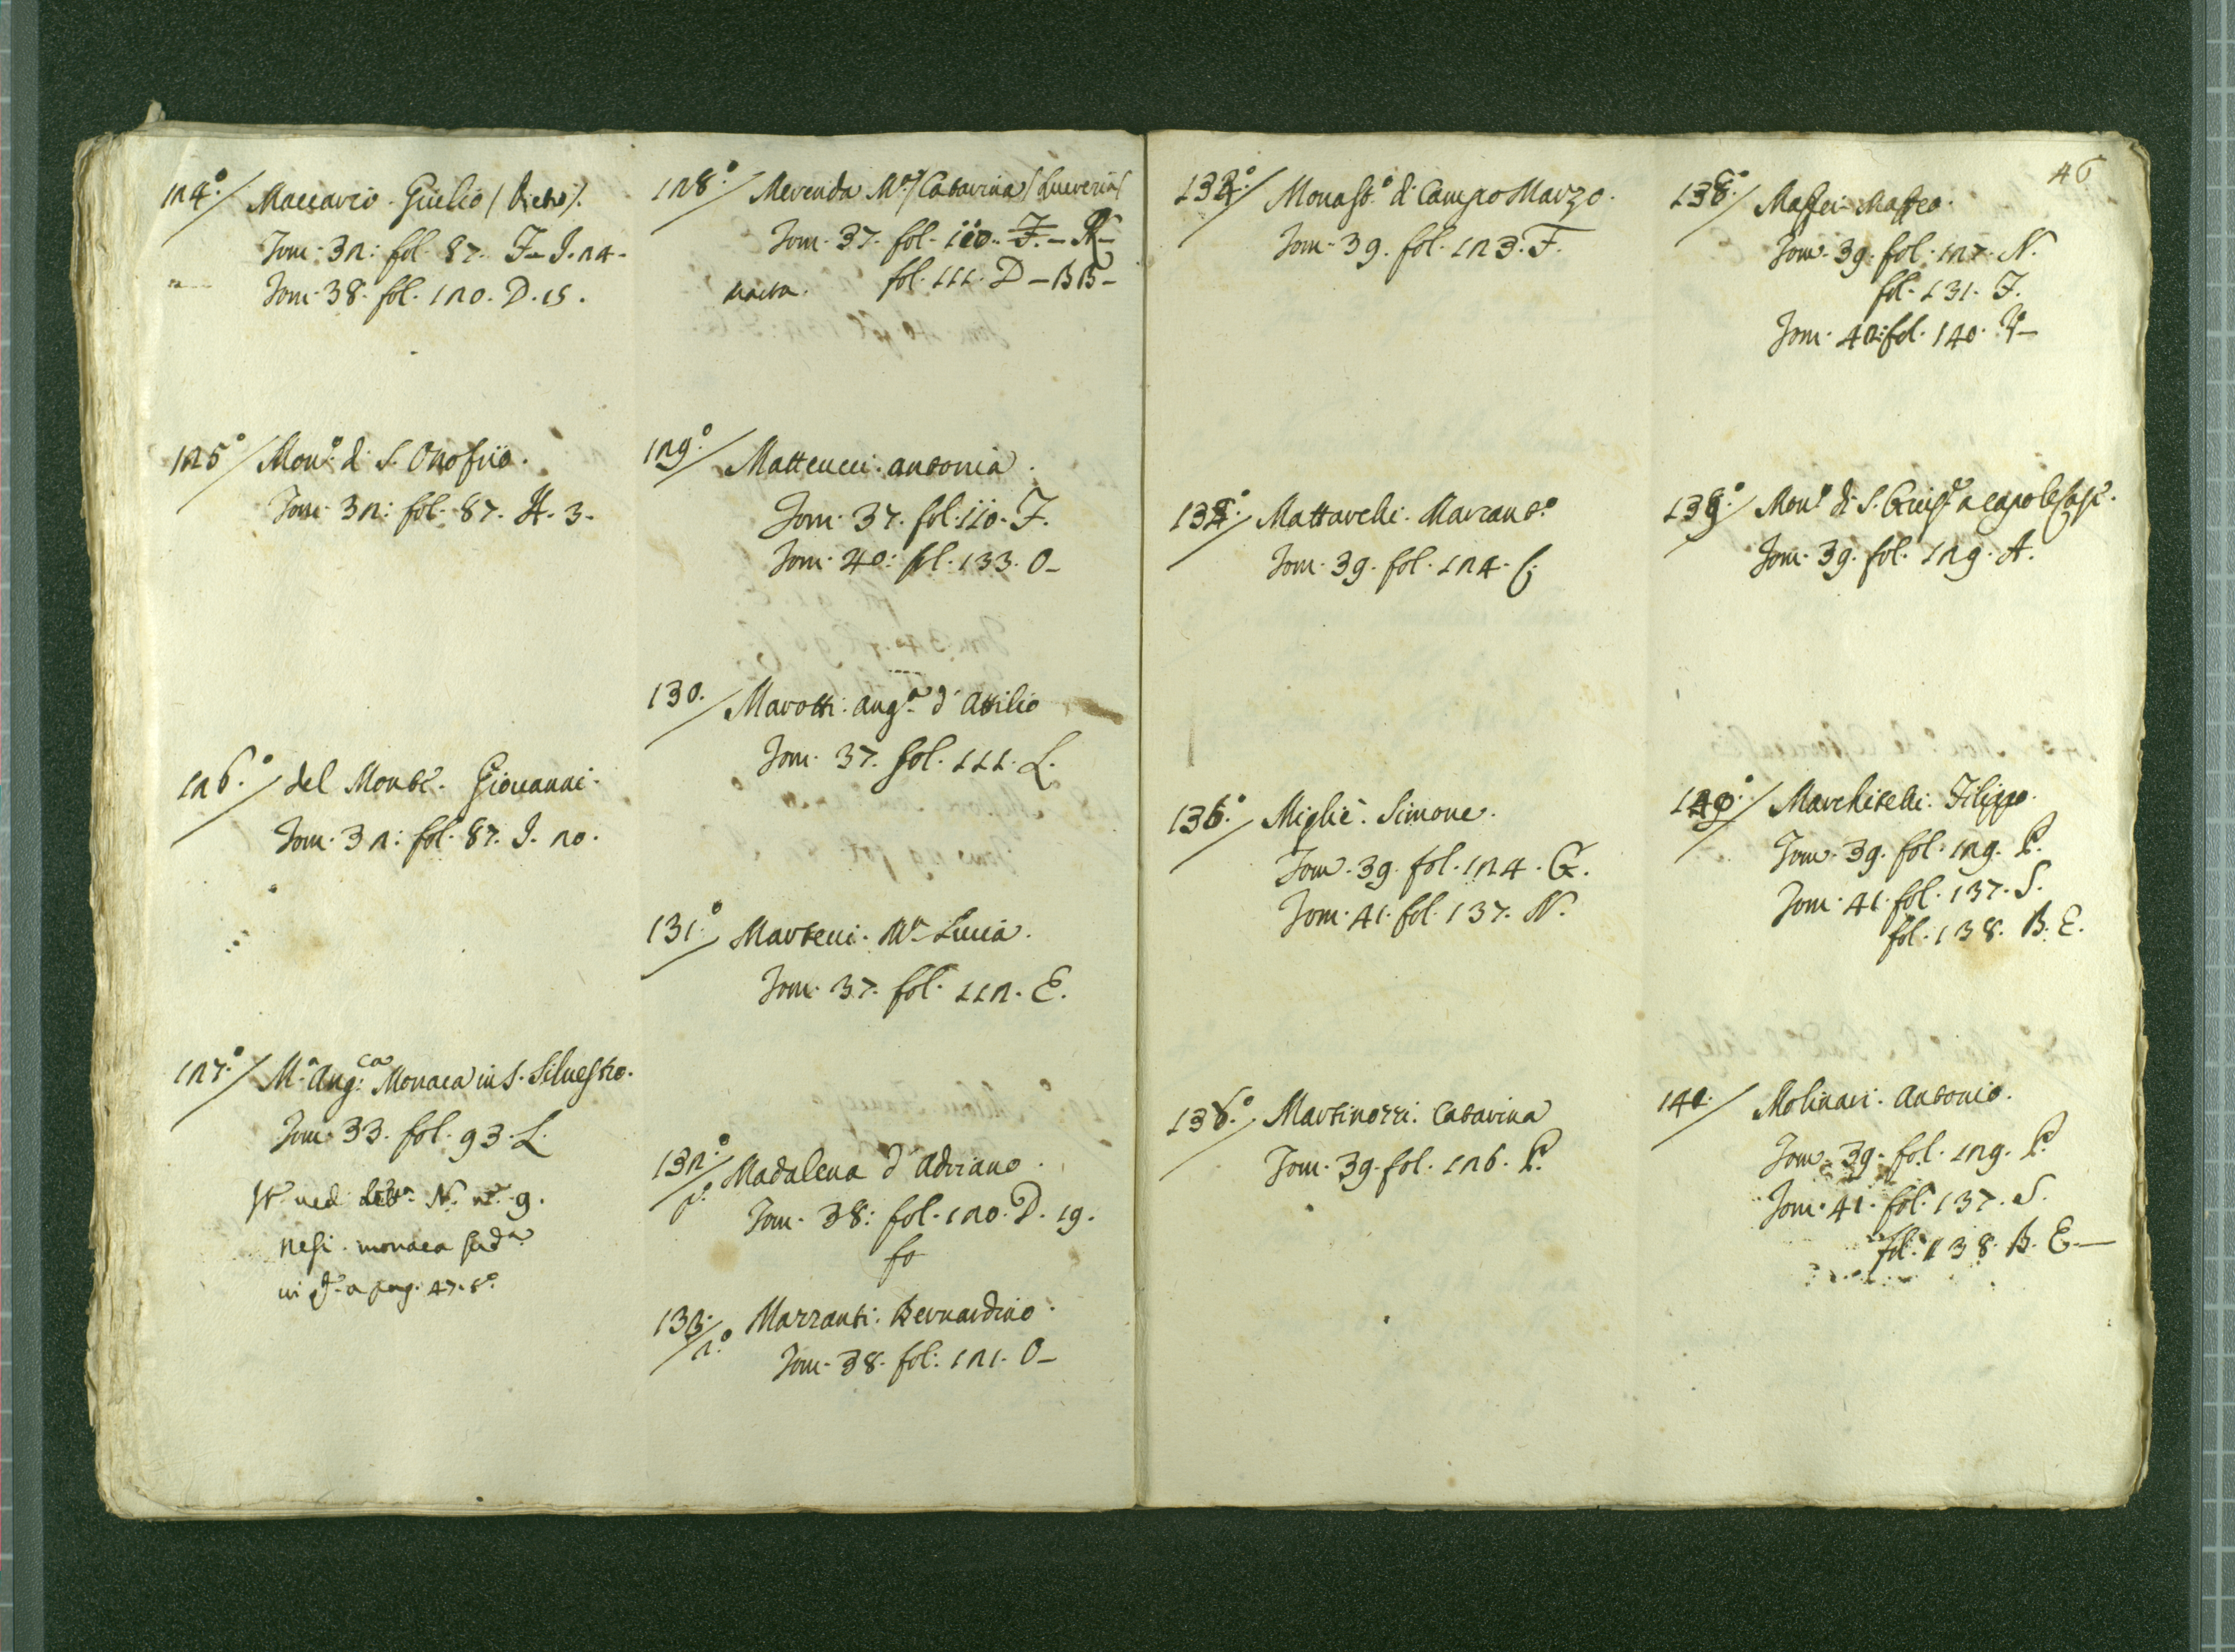 124.°/ Maccario. Giulio / Pietro /.
Tom. 32: fol. 87. F-I. 24.
Tom. 38. fol. 120. D. 15.
125°/ Mon.° di S. Onofrio.
Tom. 32: fol. 87. H. 3.
126.°/ del Monte. Giovanni.
Tom. 32: fol. 87. I. 20.
127.°/ M.ª Ang:ca Monaca in S. Silvestro.
Tom. 33. fol. 93. L.
ved. N. n.° 9.
nesi. monaca sud.ª
in a pag. 47. 8°.
128.°/ Merenda M.ª / Catarina / Lucreria /
Tom. 37. fol. 110. F. - R -
fol. 111. D - BB -
129.°/ Matteucci. Antonia.
Tom. 37. fol. 110. F.
Tom. 40: fol. 133. O -
130./ Marotti. Ang.ª d'Attilio
Tom. 37. fol. 111. L.
131.°/ Martelli. M.ª Lucia.
Tom. 37. fol. 112. E.
132.°/ p.° Madalena d'Adriano.
Tom. 38: fol. 120. D. 19.
fo
133./ 2.° Mazzanti. Bernardino.
Tom. 38. fol: 121. O -
46
134.°/ Monast.° di Campo Marzo.
Tom. 39. fol. 123. F.
Mattarelli. Marcant.°
Tom. 39. fol. 124. C.
136.°/ Miglié. Simone.
Tom. 39. fol. 124. G.
Tom. 41. fol. 137. N.
Martinozzi. Catarina
Tom. 39. fol. 126. P.
138.°/ Maffei. Maffeo.
Tom. 39. fol. 127. N.
fol. 131. F.
Tom. 42: fol. 140. V -
139.°/ Mon.° di S. a capo le Case.
Tom. 39. fol. 129. A.
140.°/ Marchiselli. Filippo.
Tom. 39. fol. 129. P.
Tom. 41. fol. 137. S.
fol. 138. B. E.
141./ Molinari. Antonio.
Tom. 39. fol. 129. P.
Tom. 41. fol. 137. S.
fol. 138. B. E. -